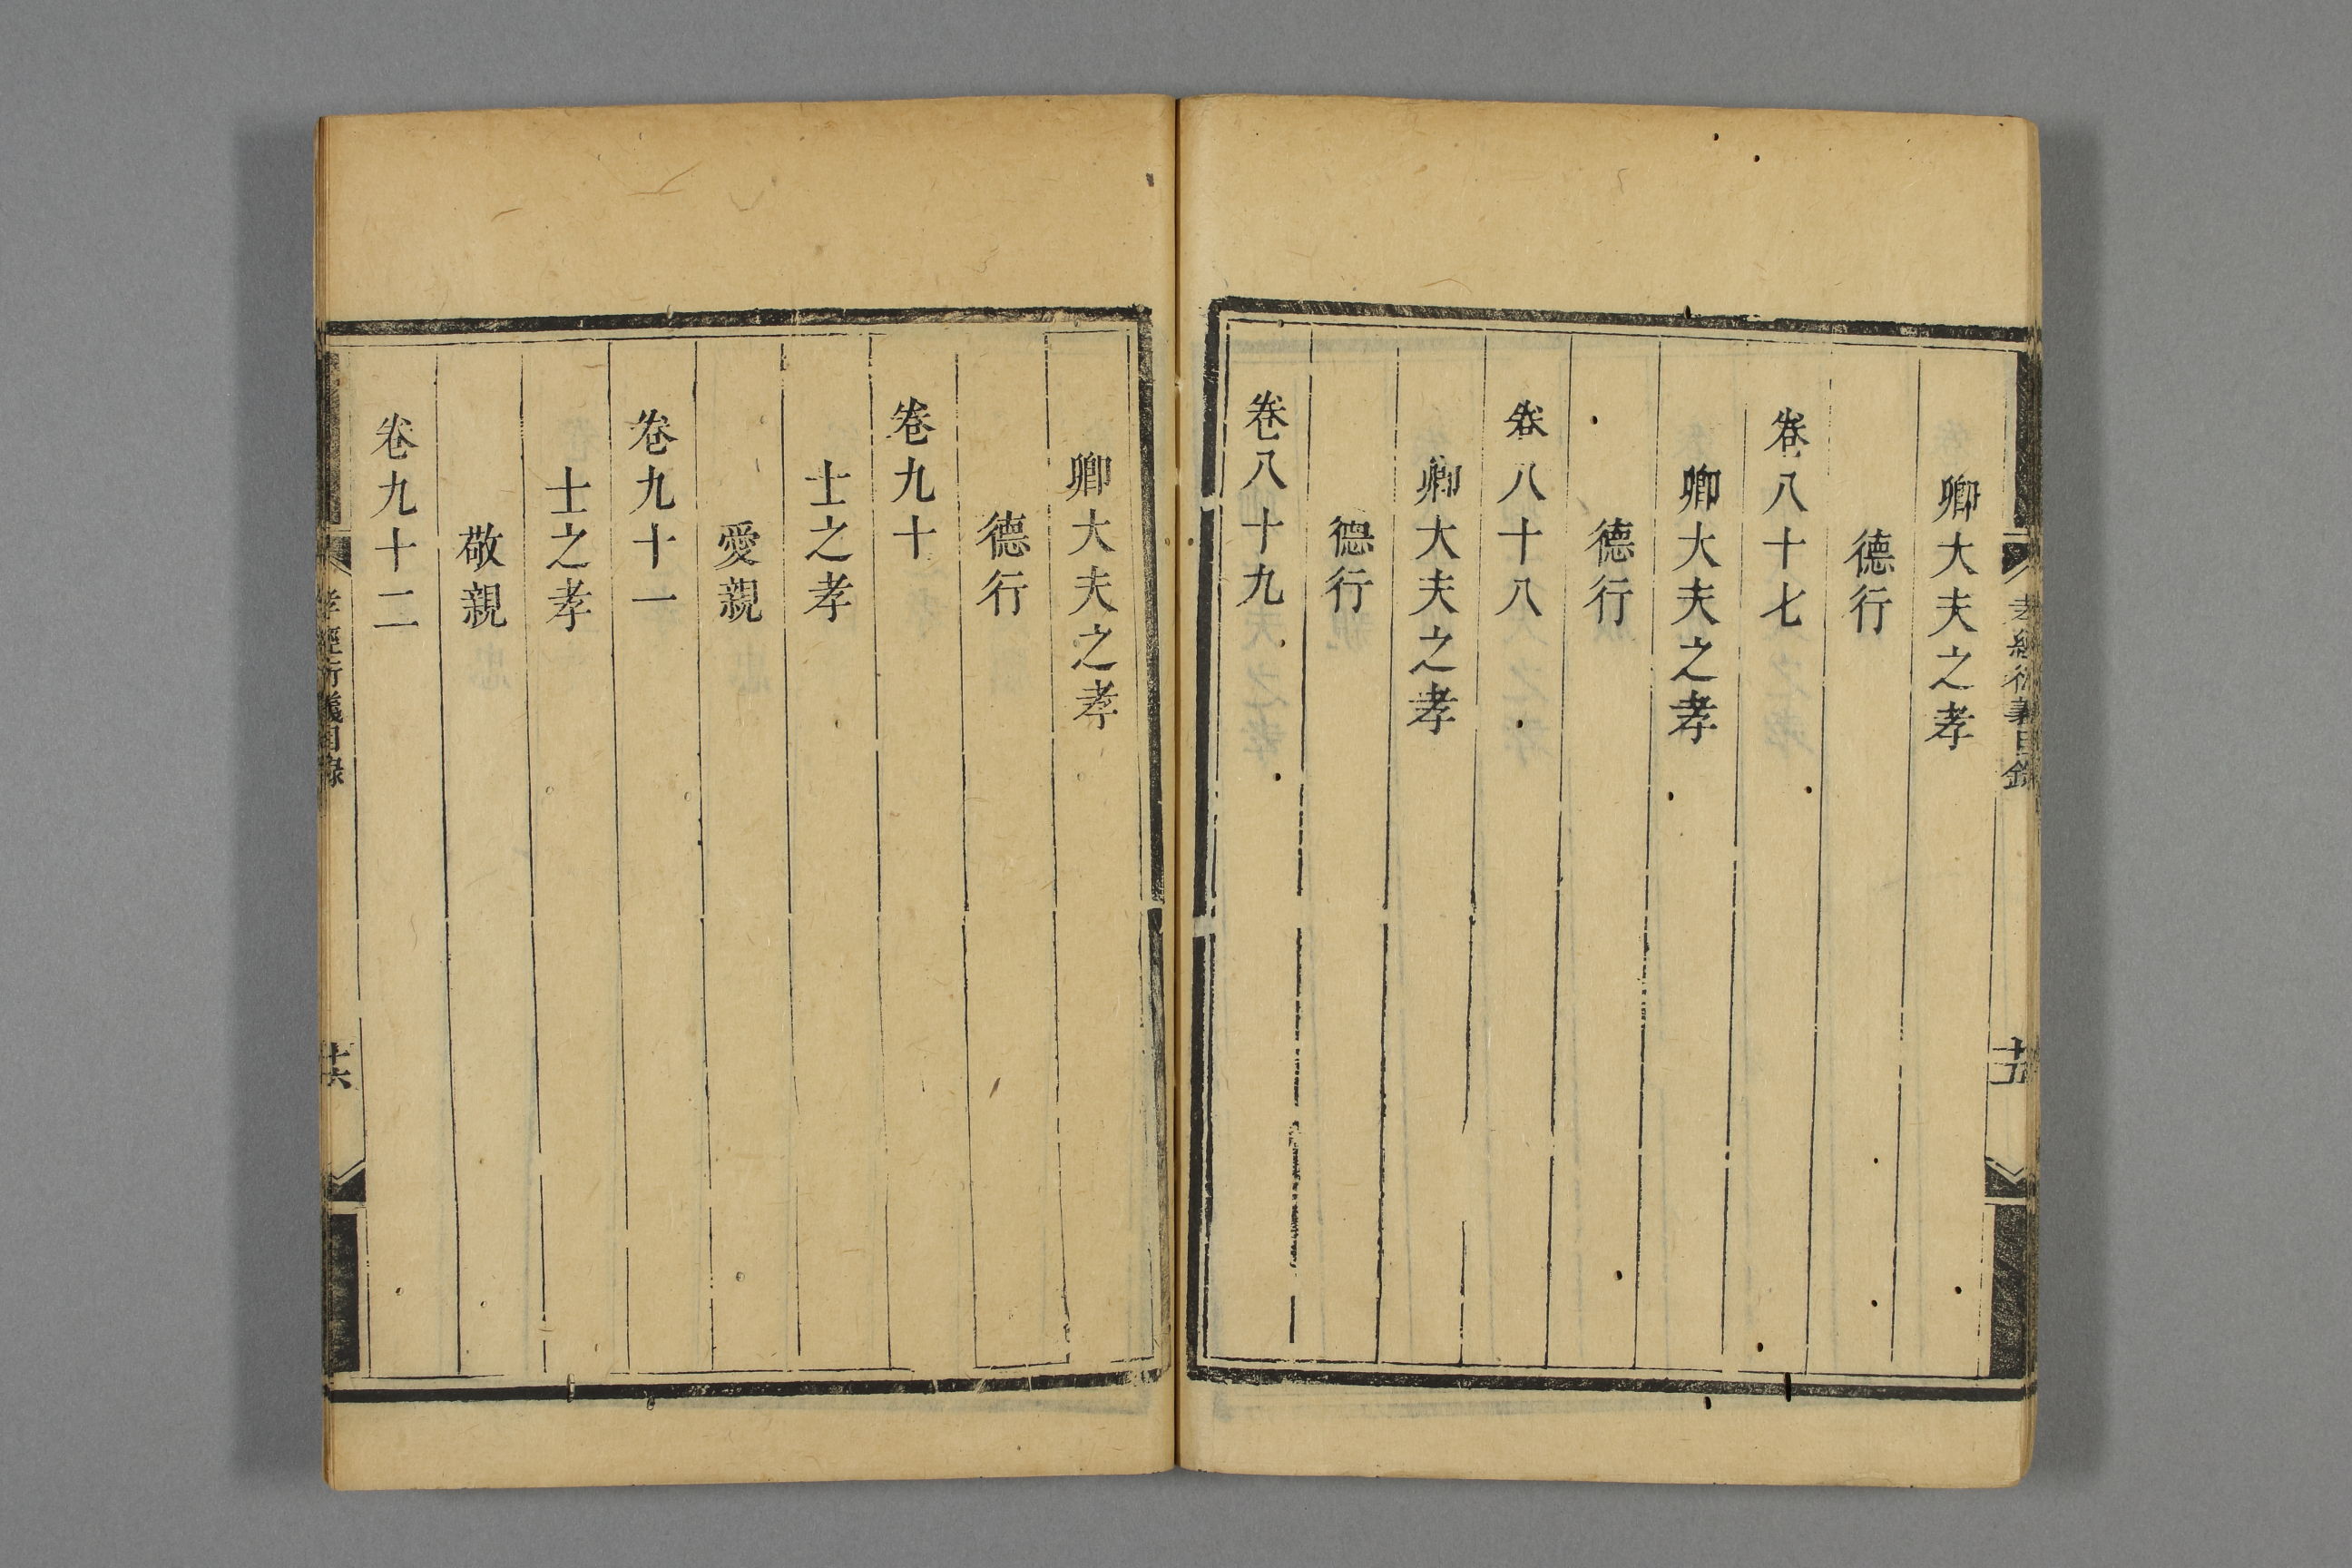 孝經衍義目錄
十五
卿大夫之孝
德行
卷八十七
卿大夫之孝
德行
卷八十八
卿大夫之孝
德行
卷八十九
卿大夫之孝
德行
卷九十
士之孝
愛親
卷九十一
士之孝
敬親
卷九十二
孝經衍義目錄
十六